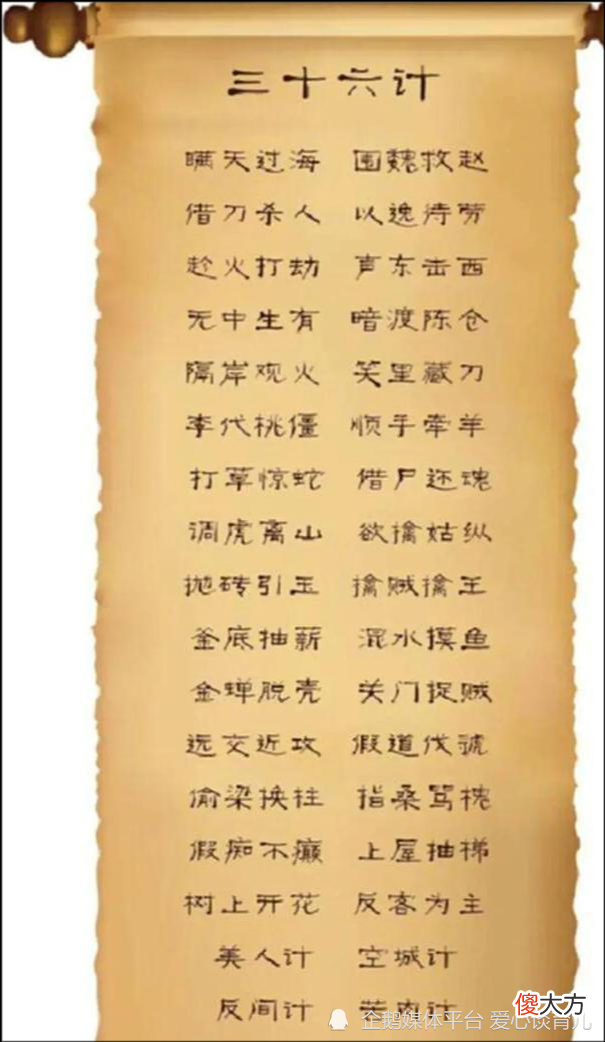 三十六计
瞒天过海 围魏救赵
借刀杀人 以逸待劳
趁火打劫 声东击西
无中生有 暗渡陈仓
隔岸观火 笑里藏刀
李代桃僵 顺手牵羊
打草惊蛇 借尸还魂
调虎离山 欲擒姑纵
抛砖引玉 擒贼擒王
釜底抽薪 混水摸鱼
金蝉脱壳 关门捉贼
远交近攻 假道伐虢
偷梁换柱 指桑骂槐
假痴不癫 上屋抽梯
树上开花 反客为主
美人计 空城计
反间计 苦肉计
傻大方
企鹅媒体平台 爱心谈育儿